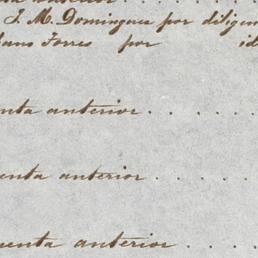 J. M. Dominguez por diligen
Torres por id
enta anterior . . . . .
enta anterior . . . . .
uenta anterior . . . .